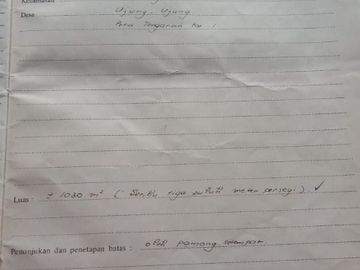 Kecamatan
Desa Ujung - Ujung
Peta
Luas : ± 1030 m² ( Seribu tiga puluh meter persegi ) ✓
Penunjukan dan penetapan batas : oleh pamong setempat